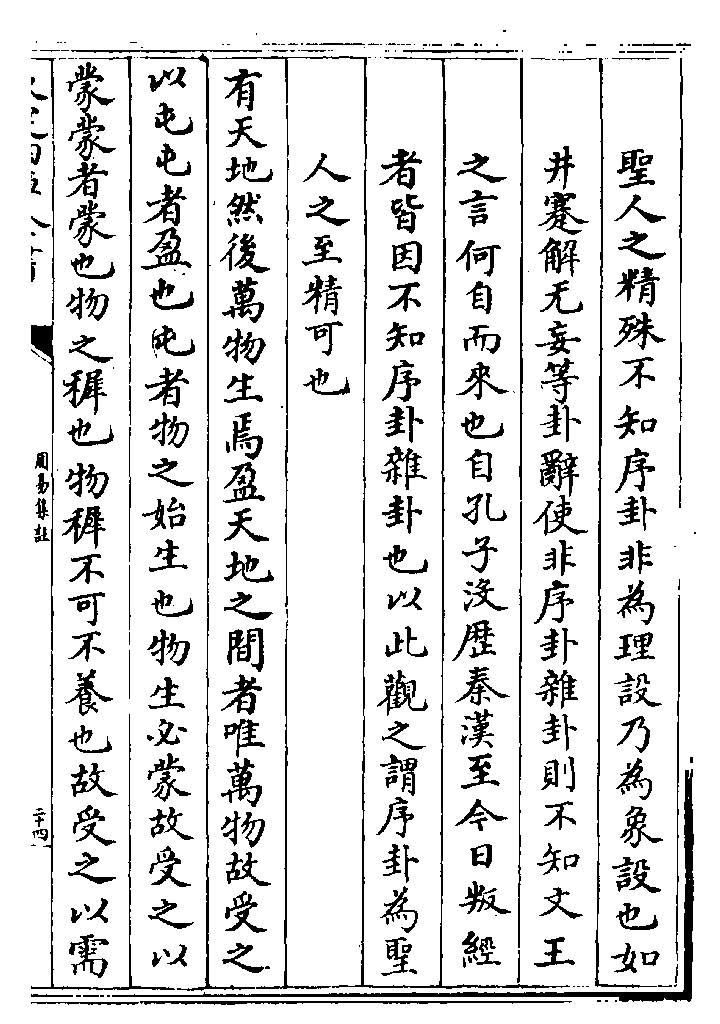 聖人之精殊不知序卦非為理設乃為象設也如
井蹇解无妄等卦辭使非序卦雜卦則不知文王
之言何自而來也自孔子沒歷秦漢至今日叛經
者皆因不知序卦雜卦也以此觀之謂序卦為聖
人之至精可也
有天地然後萬物生焉盈天地之間者唯萬物故受之
以屯屯者盈也屯者物之始生也物生必蒙故受之以
蒙蒙者蒙也物之穉也物穉不可不養也故受之以需
周易集註
二十四